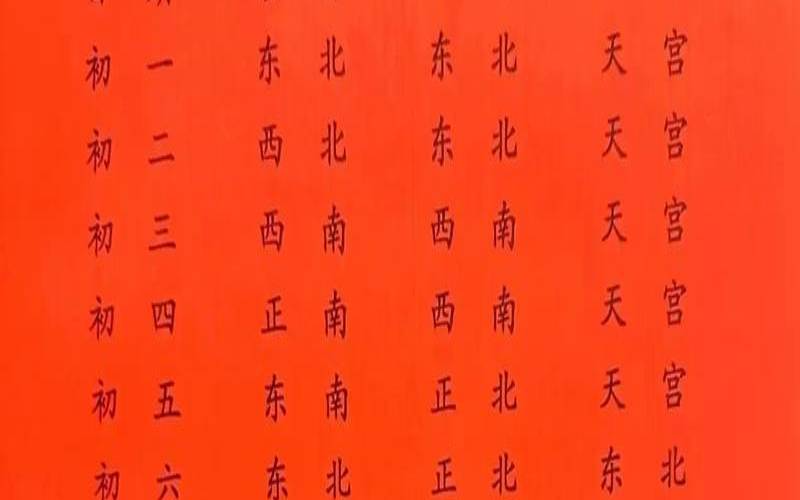 初一 东北 东北 天宫
初二 西北 东北 天宫
初三 西南 西南 天宫
初四 正南 西南 天宫
初五 东南 正北 天宫
初六 东北 正北 东北